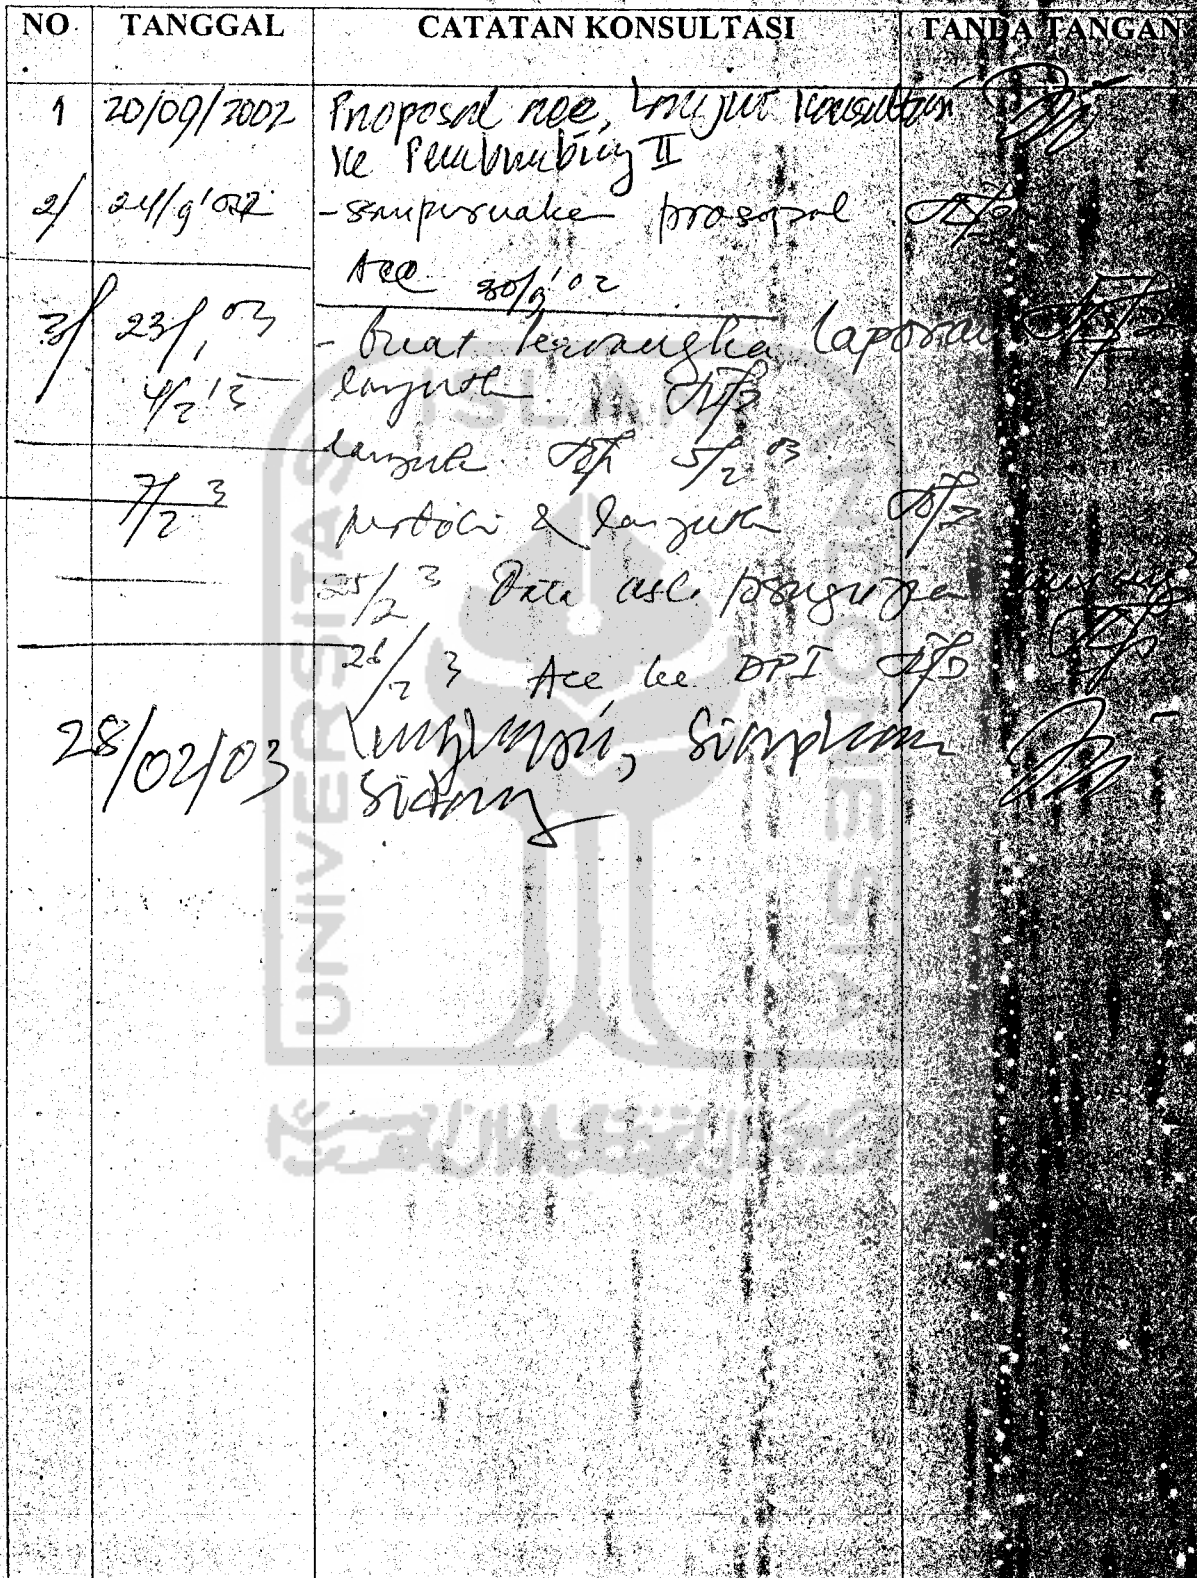 NO. TANGGAL CATATAN KONSULTASI TANDA TANGAN
1 20/09/2002 Proposal acc, lanjut konsultasi
ke Pembimbing II
2/ 24/9'02 - sempurnake proposal
Acc 30/9'02
3/ 23/1 03 - buat kerangka laporan
4/2 '3 lanjutk
lanjutk 5/2 03
7/2 3 & lanjutk
25/2 3 Data asli pengujian
26/2 3 Acc ke DPI
28/02/03 Lengkapi, siapkan
Sidang
UNIVERSITAS ISLAM INDONESIA